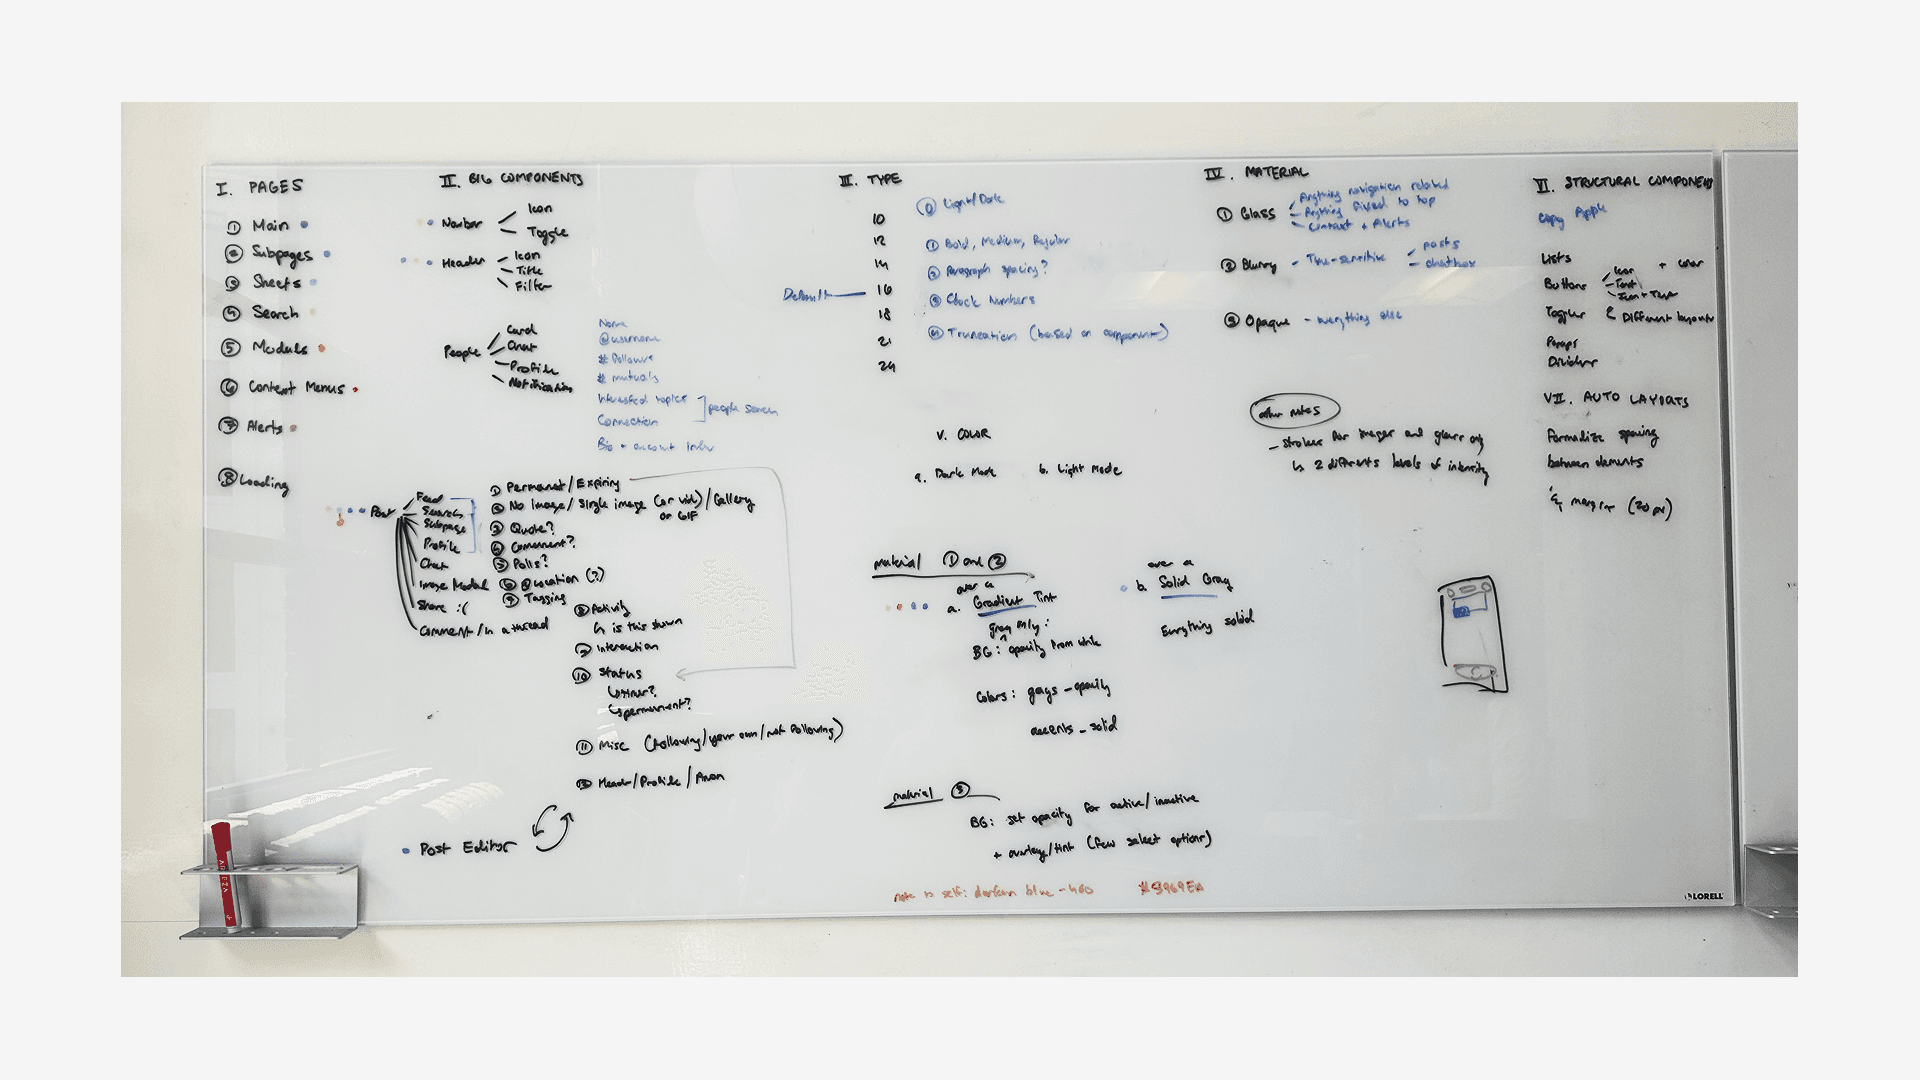 I. PAGES
① Main
② Subpages
③ Sheets
④ Search
⑤ Modals
⑥ Context Menus
⑦ Alerts
⑧ Loading
II. BIG COMPONENTS
Navbar
Icon
Toggle
Header
Icon
Title
Filter
People
Card
Chat
Profile
Notification
Name
@username
# Followers
# mutuals
Interested topics
Connection
people search
Bio + account info
Post
Feed
Search
Subpage
Profile
Chat
Image Modal
Share :(
Comment/in a thread
① Permanent/Expiring
② No Image/Single image (or vid)/Gallery
or GIF
③ Quote?
④ Comment?
⑤ Polls?
⑥ @Location (?)
⑦ Tagging
⑧ Activity
↳ is this shown
⑨ Interaction
⑩ Status
↳ timer?
↳ permanent?
⑪ Misc (Following/your own/not following)
⑫ Header/Profile/Anon
Post Editor
III. TYPE
10
12
14
Default 16
18
21
24
⓪ Light/Dark
① Bold, Medium, Regular
② Paragraph spacing?
③ Clock Numbers
④ Truncation (based on component)
V. COLOR
a. Dark Mode
b. Light Mode
material ① and ②
over a
a. Gradient Tint
gray only:
BG: opacity from white
Colors: grays - opacity
accents - solid
over a
b. Solid Gray
Everything solid
material ③
BG: set opacity for active/inactive
+ overlay/tint (few select options)
note to self: darken blue - 400
IV. MATERIAL
① Glass
Anything navigation related
Anything fixed to top
Context + Alerts
② Blurry - Time-sensitive
posts
chatbox
③ Opaque - everything else
other notes
- strokes for images and glass only
↳ 2 differents levels of intensity
VI. STRUCTURAL COMPONENT
Copy Apple
Lists
Buttons
Icon
Text
Icon + Text
+ color
Toggles
2 Different layouts
Popups
Divider
VII. AUTO LAYOUTS
Formalize spacing
between elements
& margin (20 px)
LORELL